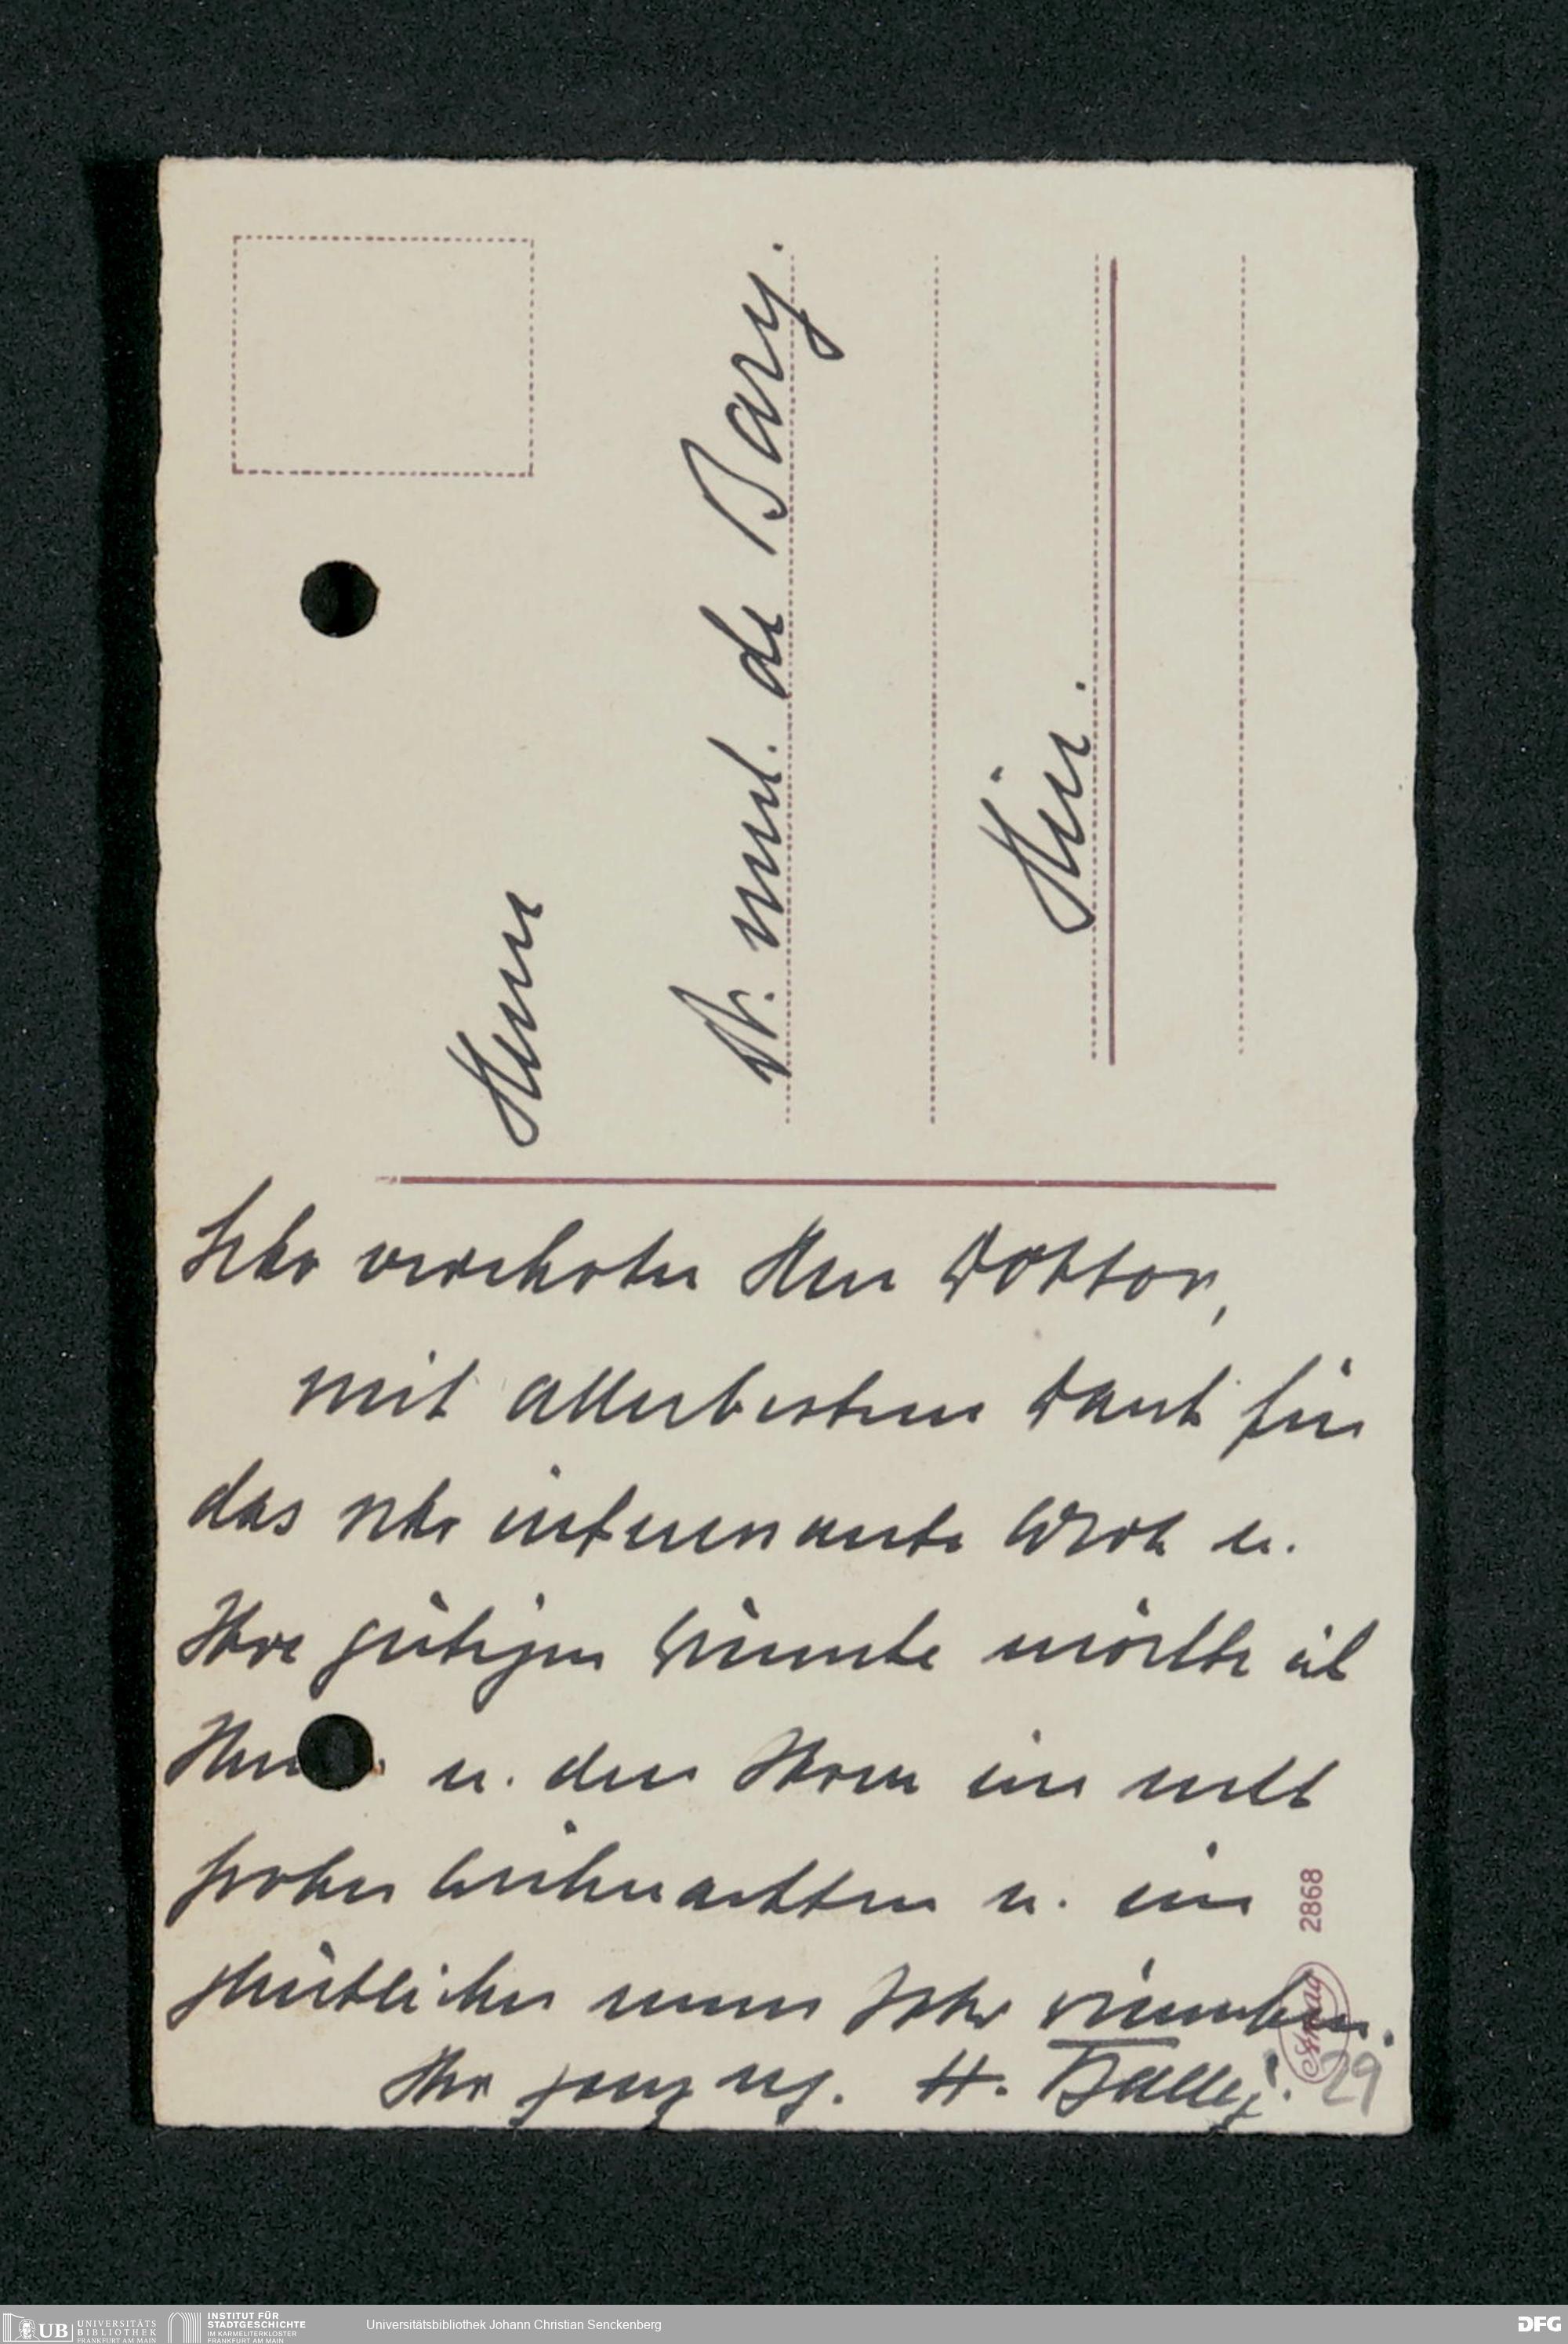 Herrn
Dr. med. de Bary.
Hier.
Sehr verehrter Herr Doktor,
mit allerbestem Dank für
das sehr interessante Werk u.
Ihre gütigen Wünsche möchte ich
Ihnen u. den Ihren ein recht
frohes Weihnachten u. ein
glückliches neues Jahr wünschen.
Ihr ganz erg. H.
2868
29
UB UNIVERSITÄTS
BIBLIOTHEK
FRANKFURT AM MAIN
INSTITUT FÜR
STADTGESCHICHTE
IM KARMELITERKLOSTER
FRANKFURT AM MAIN
Universitätsbibliothek Johann Christian Senckenberg
DFG